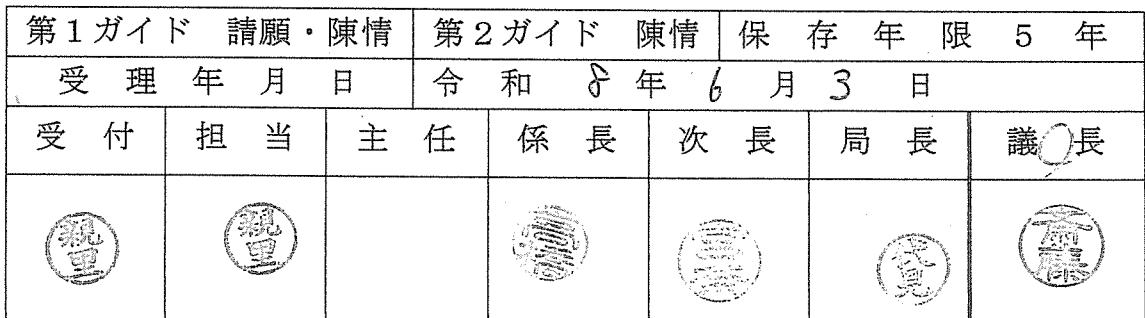 第１ガイド　請願・陳情　第２ガイド　陳情　保存年限５年
受理年月日　令和８年６月３日
受付　担当　主任　係長　次長　局長　議長
親里　親里　斎藤